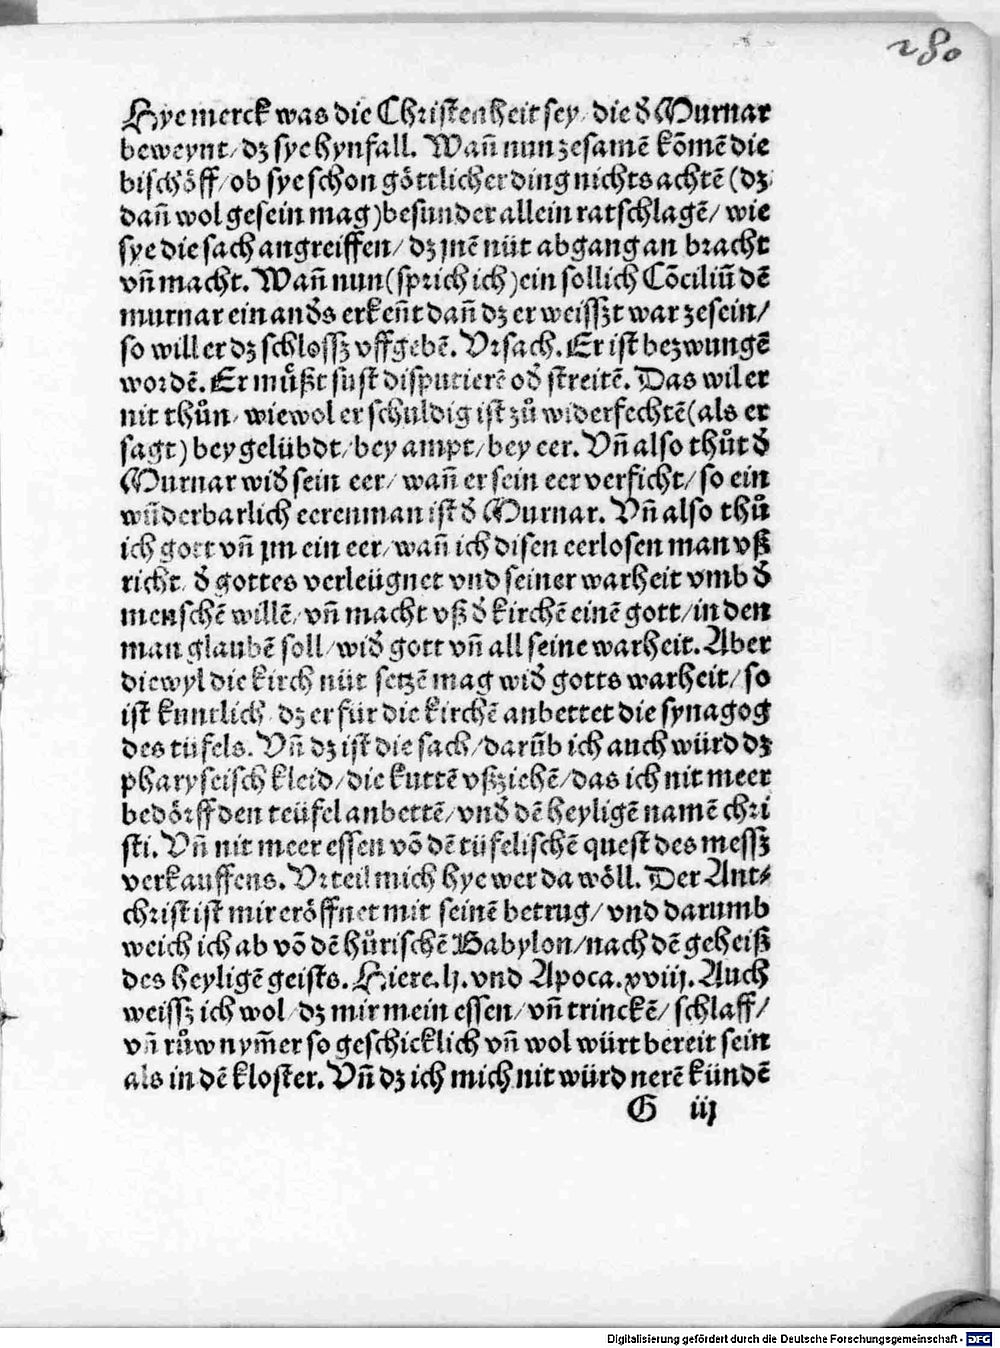 280
Hye merck was die Christenheit sey/ die đ Murnar
beweynt/ dz sye hynfall. Wañ nun zesamē kōmē die
bischöff/ ob sye schon göttlicher ding nichts achtē (dz
dañ wol gesein mag) besunder allein ratschlagē/ wie
sye die sach angreiffen/ dz jnē nüt abgang an bracht
vñ macht. Wañ nun (sprich ich) ein sollich Cōciliū dē
murnar ein anđs erkeñt dañ dz er weisszt war zesein/
so will er dz schlossz vffgebē. Vrsach. Er ist bezwungē
wordē. Er můßt sust disputierē ođ streitē. Das wil er
nit thůn/ wiewol er schuldig ist zů widerfechtē (als er
sagt) bey gelübdt/ bey ampt/ bey eer. Vñ also thůt đ
Murnar wiđ sein eer/ wañ er sein eer verficht/ so ein
wūderbarlich eerenman ist đ Murnar. Vñ also thů
ich gott vñ jm ein eer/ wañ ich disen eerlosen man vß
richt/ đ gottes verleügnet vnd seiner warheit vmb đ
menschē willē/ vñ macht vß đ kirchē einē gott/ in den
man glaubē soll/ wiđ gott vñ all seine warheit. Aber
diewyl die kirch nüt setzē mag wiđ gotts warheit/ so
ist kuntlich/ dz er für die kirchē anbettet die synagog
des tüfels. Vñ dz ist die sach/ darūb ich auch würd dz
pharyseisch kleid/ die kuttē vßziehē/ das ich nit meer
bedörff den teüfel anbettē/ vnđ dē heyligē namē chri
sti. Vñ nit meer essen vō dē tüfelischē quest des messz
verkauffens. Vrteil mich hye wer da wöll. Der Ant⸗
christ ist mir eröffnet mit seinē betrug/ vnd darumb
weich ich ab vō dē hůrischē Babylon/ nach dē geheiß
des heyligē geists. Hiere. lj. vnd Apoca. xviij. Auch
weissz ich wol/ dz mir mein essen/ vñ trinckē/ schlaff/
vñ růw nym̄er so geschicklich vñ wol würt bereit sein
als in dē kloster. Vñ dz ich mich nit würd nerē kündē
G iij
Digitalisierung gefördert durch die Deutsche Forschungsgemeinschaft - DFG